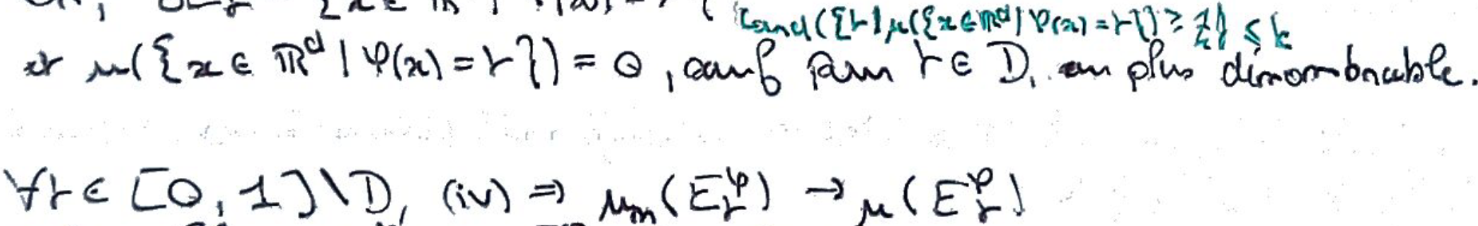 Card({r | μ({x ∈ ℝᵈ | φ(x) = r}) ≥ 1/k}) ≤ k
et μ({x ∈ ℝᵈ | φ(x) = r}) = 0, sauf pour r ∈ D, au plus dénombrable.
∀r ∈ [0, 1] \ D, (iv) ⇒ μₙ(E_r^φ) → μ(E_r^φ)